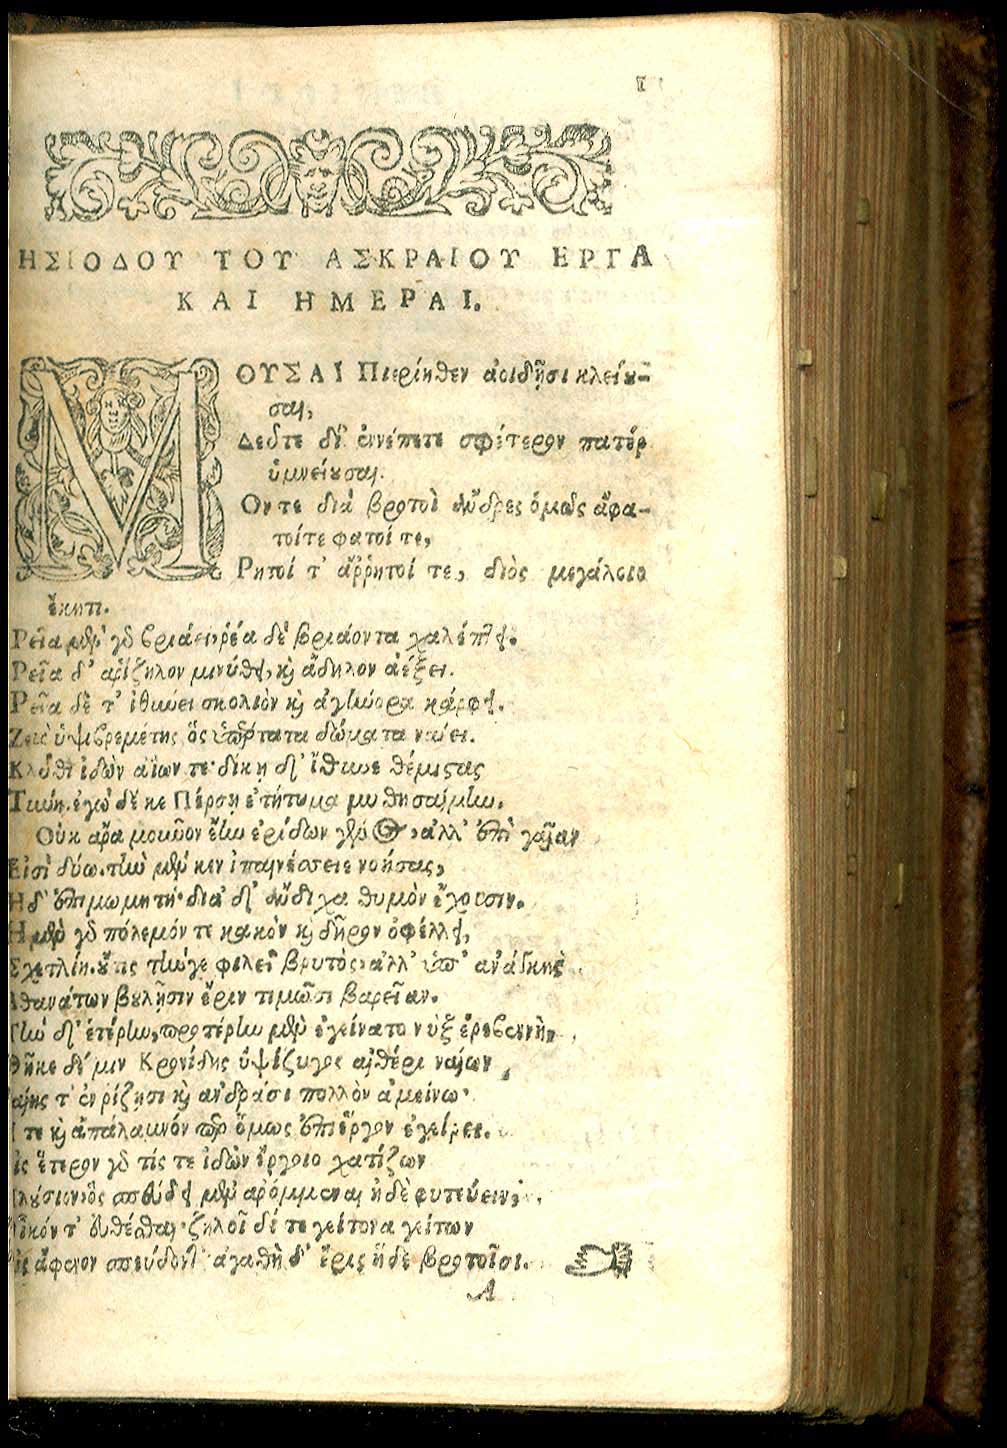 1
ΗΣΙΟΔΟΥ ΤΟΥ ΑΣΚΡΑΙΟΥ ΕΡΓΑ
ΚΑΙ ΗΜΕΡΑΙ.
ΜΟΥΣΑΙ Πιερίηθεν ἀοιδῇσι κλείου-
σαι,
Δεῦτε δὴ ἐννέπετε σφέτερον πατέρ
ὑμνείουσαι.
Ον τε διὰ βροτοὶ ἄνδρες ὁμῶς ἄφα-
τοίτε φατοί τε,
Ρητοί τ' ἄῤῥητοί τε, διὸς μεγάλοιο
ἕκητι.
Ρεῖα μὲν γὰρ βριάει, ῥέα δὲ βριάοντα χαλέπτει.
Ρεῖα δ' ἀρίζηλον μινύθει, καὶ ἄδηλον ἀέξει.
Ρεῖα δέ τ' ἰθύνει σκολιὸν καὶ ἀγήνορα κάρφει.
Ζεὺς ὑψιβρεμέτης ὃς ὑπέρτατα δώματα ναίει.
Κλῦθι ἰδὼν ἀΐων τε· δίκη δ' ἴθυνε θέμιστας
Τύνη. ἐγὼ δέ κε Πέρσῃ ἐτήτυμα μυθησαίμην.
Οὐκ ἄρα μοῦνον ἔην ἐρίδων γένος, ἀλλ' ἐπὶ γαῖαν
Εἰσὶ δύω. τὴν μέν κεν ἐπαινέσσειε νοήσας,
Η δ' ἐπιμωμητή· διὰ δ' ἄνδιχα θυμὸν ἔχουσιν.
Η μὲν γὰρ πόλεμόν τε κακὸν καὶ δῆριν ὀφέλλει,
Σχετλίη. οὔτις τήνγε φιλεῖ βροτὸς, ἀλλ' ὑπ' ἀνάγκης
Αθανάτων βουλῇσιν ἔριν τιμῶσι βαρεῖαν.
Τὴν δ' ἑτέρην, προτέρην μὲν ἐγείνατο νὺξ ἐρεβεννὴ,
Θῆκε δέ μιν Κρονίδης ὑψίζυγος αἰθέρι ναίων,
γαίης τ' ἐν ῥίζῃσι καὶ ἀνδράσι πολλὸν ἀμείνω·
Η τε καὶ ἀπάλαμνόν περ ὅμως ἐπὶ ἔργον ἐγείρει.
Εἰς ἕτερον γὰρ τίς τε ἰδὼν ἔργοιο χατίζων
Πλούσιον, ὃς σπεύδει μὲν ἀρόμμεναι ἠδὲ φυτεύειν,
Οἶκόν τ' εὖ θέσθαι· ζηλοῖ δέ τε γείτονα γείτων
Εἰς ἄφενον σπεύδοντ'· ἀγαθὴ δ' ἔρις ἥδε βροτοῖσι.
A